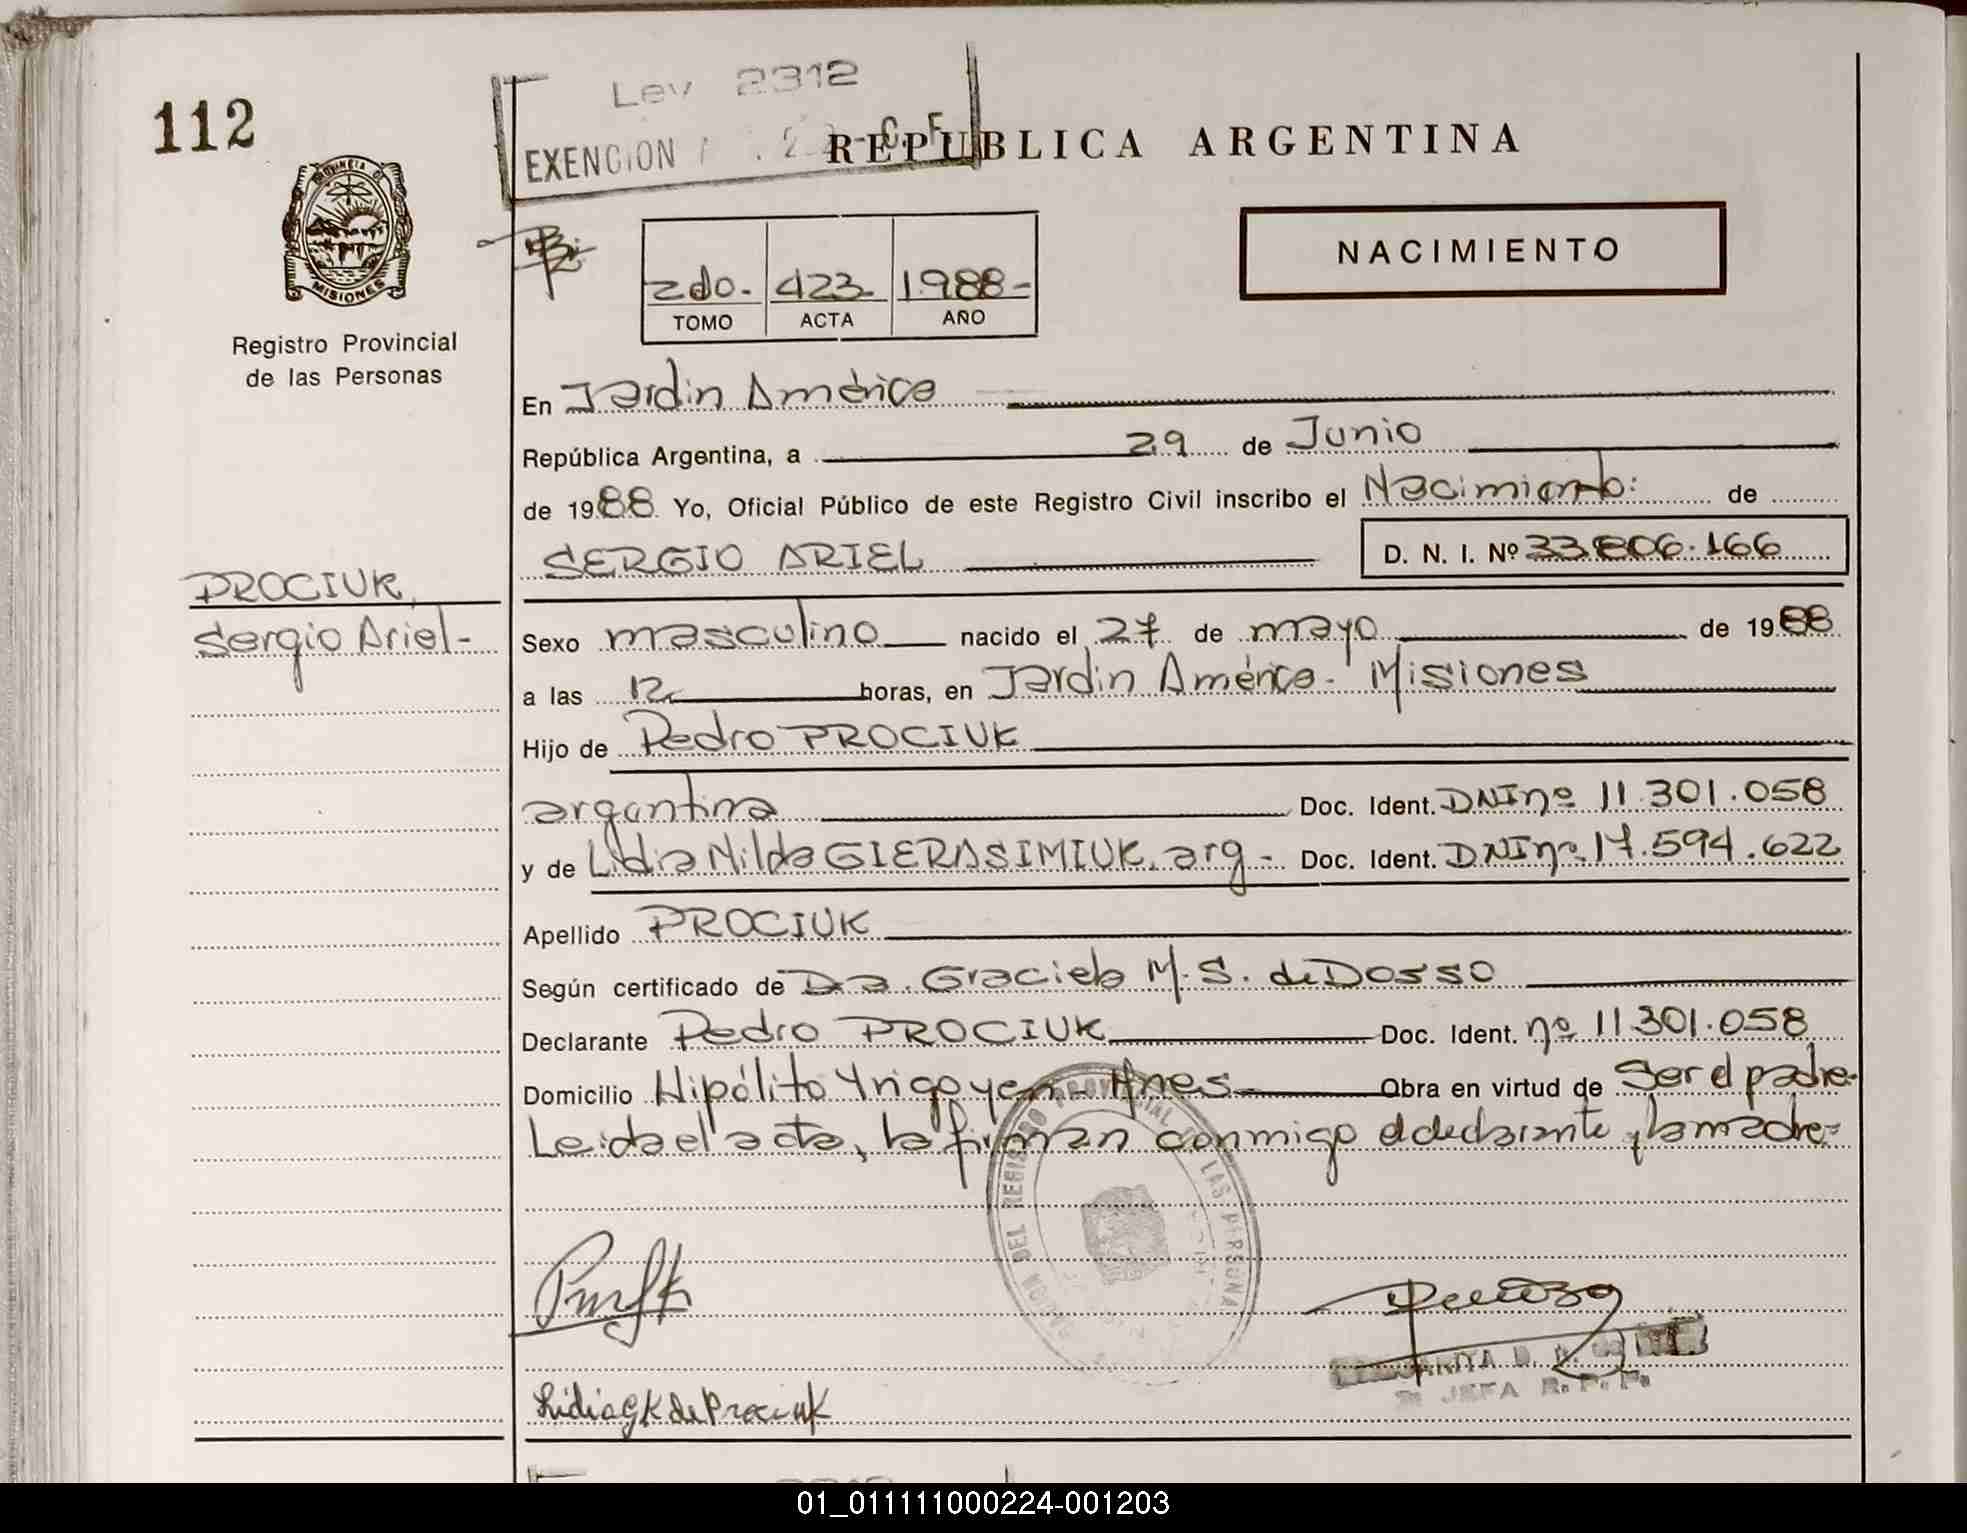 112
Ley 2312
EXENCION
REPUBLICA ARGENTINA
PROVINCIA DE
MISIONES
Registro Provincial
de las Personas
2do. 423 1.988-
TOMO ACTA AÑO
NACIMIENTO
En Jardin América
República Argentina, a 29 de Junio
de 1988 Yo, Oficial Público de este Registro Civil inscribo el Nacimiento: de
SERGIO ARIEL D. N. I. Nº 33.806.166
PROCIUK,
Sergio Ariel-
Sexo masculino nacido el 27 de mayo de 1988
a las 12 horas, en Jardin América- Misiones
Hijo de Pedro PROCIUK
argentina Doc. Ident. DNI nº 11.301.058
y de Lidia Nilda GIERASIMIUK, arg- Doc. Ident. DNI nº 17.594.622
Apellido PROCIUK
Según certificado de Da. Graciela M. S. de Dosso
Declarante Pedro PROCIUK Doc. Ident. nº 11.301.058
Domicilio Hipólito Yrigoyen- Mnes Obra en virtud de Ser el padre-
Leida el acta, la firman conmigo el declarante y la madre=
DEL REGISTRO PROVINCIAL LAS PERSONA
Lidia G K de Prociuk
JEFA R. P. P.
01_011111000224-001203